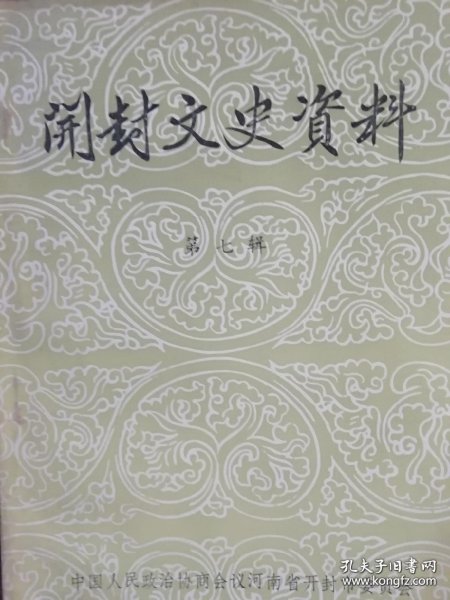 開封文史資料
第七辑
中国人民政治协商会议河南省开封市委员会
孔夫子旧书网